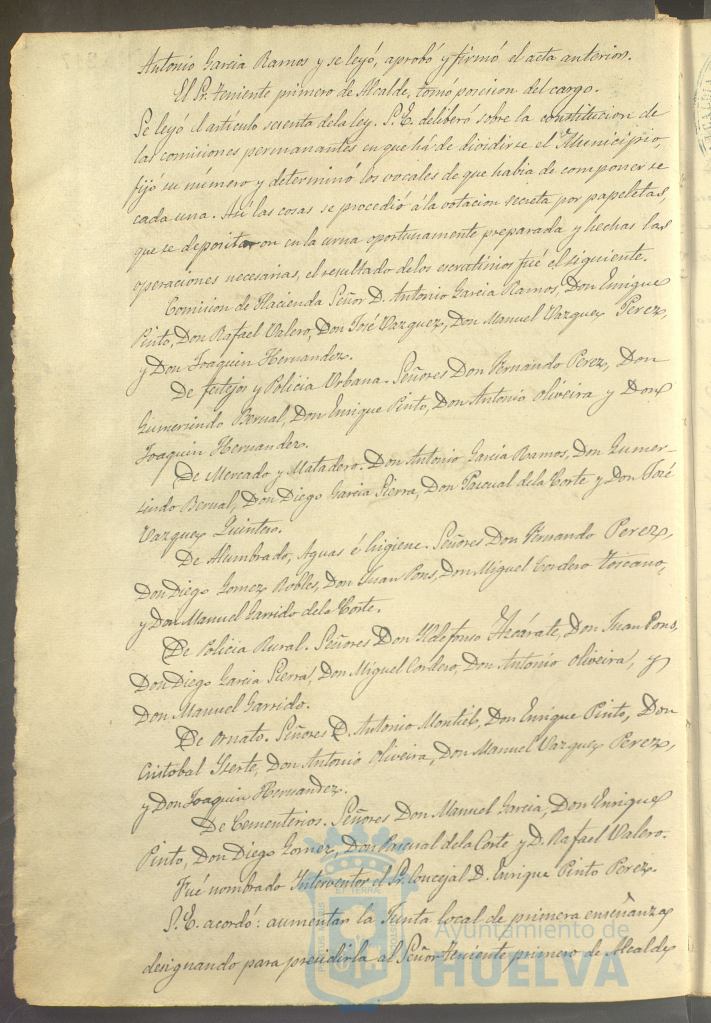 Antonio Garcia Ramos y se leyó, aprobó y firmó el acta anterior.
El Sr. Teniente primero de Alcalde, tomó posicion del cargo.
Se leyó el articulo sesenta de la ley. S. E. deliberó sobre la constitucion de
las comisiones permanantes en que há de dividirse el Municipio,
fijó su número y determinó los vocales de que habia de componerse
cada una. Asi las cosas se procedió á la votacion secreta por papeletas,
que se depositaron en la urna oportunamente preparada y hechas las
operaciones necesarias, el resultado de los escrutinios fué el siguiente.
Comision de Hacienda Señor D. Antonio Garcia Ramos, Don Enrique
Pinto, Don Rafael Valero, Don José Vazquez, Don Manuel Vazquez Perez,
y Don Joaquin Hernandez.
De festejos y Policia Urbana. Señores Don Fernando Perez, Don
Gumersindo Bernal, Don Enrique Pinto, Don Antonio Oliveira y Don
Joaquin Hernandez.
De Mercado y Matadero. Don Antonio Garcia Ramos, Don Gumer-
sindo Bernal, Don Diego Garcia Sierra, Don Pascual de la Corte y Don José
Vazquez Quintero.
De Alumbrado, Aguas é higiene. Señores Don Fernando Perez,
Don Diego Gomez Robles, Don Juan Pons, Don Miguel Cordero Toscano,
y Don Manuel Garrido de la Corte.
De Policia Rural. Señores Don Ildefonso Azcárate, Don Juan Pons,
Don Diego Garcia Sierra, Don Miguel Cordero, Don Antonio Oliveira, y
Don Manuel Garrido.
De Ornato. Señores D. Antonio Montiel, Don Enrique Pinto, Don
Cristobal Yserte, Don Antonio Oliveira, Don Manuel Vazquez Perez,
y Don Joaquin Hernandez.
De Cementerios. Señores Don Manuel Garcia, Don Enrique
Pinto, Don Diego Gomez, Don Pascual de la Corte y D. Rafael Valero.
Fué nombrado Interventor el Sr. Concejal D. Enrique Pinto Perez.
S. E. acordó: aumentar la Junta local de primera enseñanza
designando para presidirla al Señor Teniente primero de Alcalde
Ayuntamiento de
HUELVA